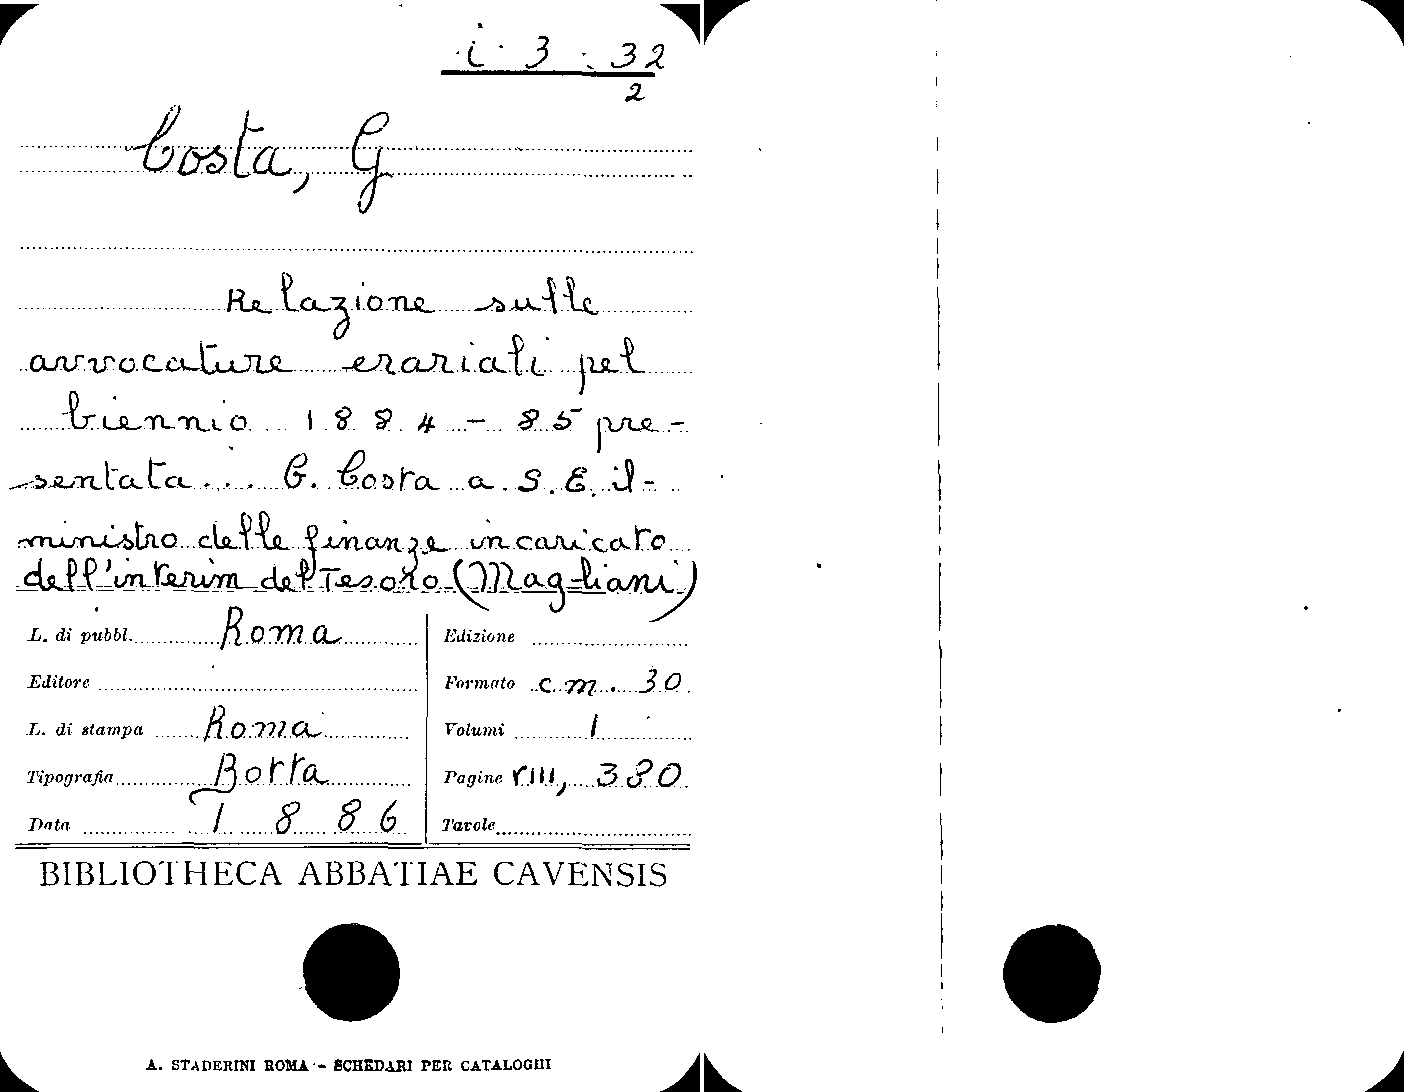 i. 3. 32
2
Costa, G
Relazione sulle
avvocature erariali pel
biennio 1884-85 pre-
sentata... G. Costa a S.E. il-
ministro delle finanze incaricato
dell'interim del Tesoro (Magliani)
L. di pubbl. Roma
Edizione
Editore
Formato cm. 30
L. di stampa Roma
Volumi 1
Tipografia Botta
Pagine VIII, 380
Data 1886
Tavole
BIBLIOTHECA ABBATIAE CAVENSIS
A. STADERINI ROMA - SCHEDARI PER CATALOGHI